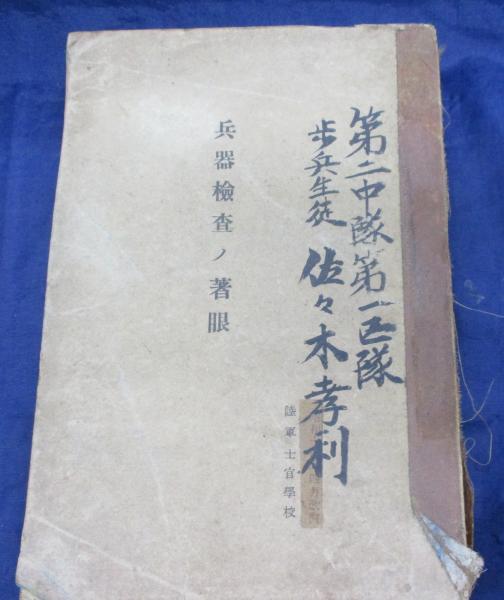 第二中隊第一区隊
歩兵生徒 佐々木孝利
兵器檢査ノ著眼
陸軍士官學校